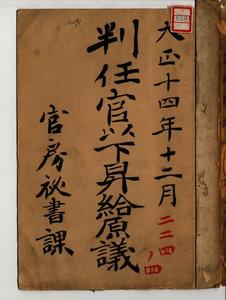 大正十四年十二月
二二四ノ
判任官以下昇給原議
官房祕書課